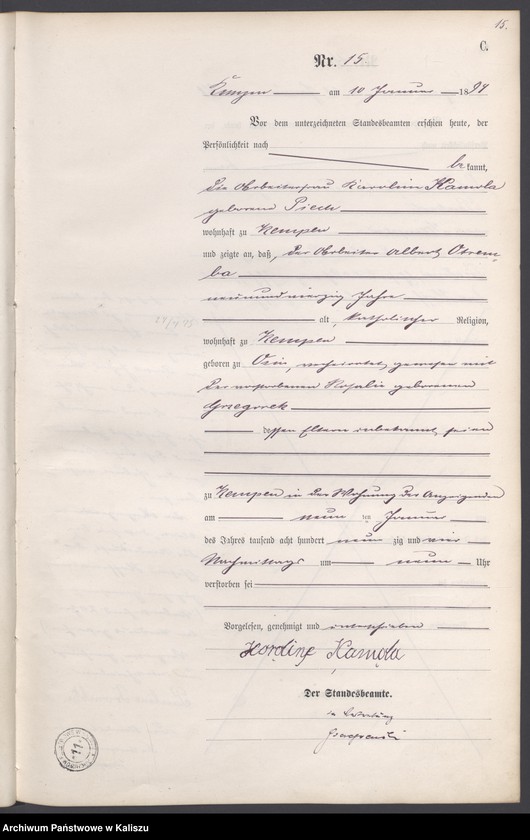 15.
C.
Nr. 15
Kempen am 10 Januar 1894
Vor dem unterzeichneten Standesbeamten erschien heute, der
Persönlichkeit nach
bekannt,
die Arbeiterfrau Karoline Kamola
geborene Piech
wohnhaft zu Kempen
und zeigte an, daß, der Arbeiter Albert Otrem-
ba
neunundvierzig Jahre
alt, katholischer Religion,
wohnhaft zu Kempen
geboren zu verheiratet gewesen mit
der verstorbenen Rosalie geborenen
Grzegorek
dessen Eltern unbekannt seien
zu Kempen in der Wohnung der Anzeigenden
am neun ten Januar
des Jahres tausend acht hundert neun zig und vier
Nachmittags um neun Uhr
verstorben sei
Vorgelesen, genehmigt und unterschrieben
Kamola
Der Standesbeamte.
in Vertretung
11
Archiwum Państwowe w Kaliszu